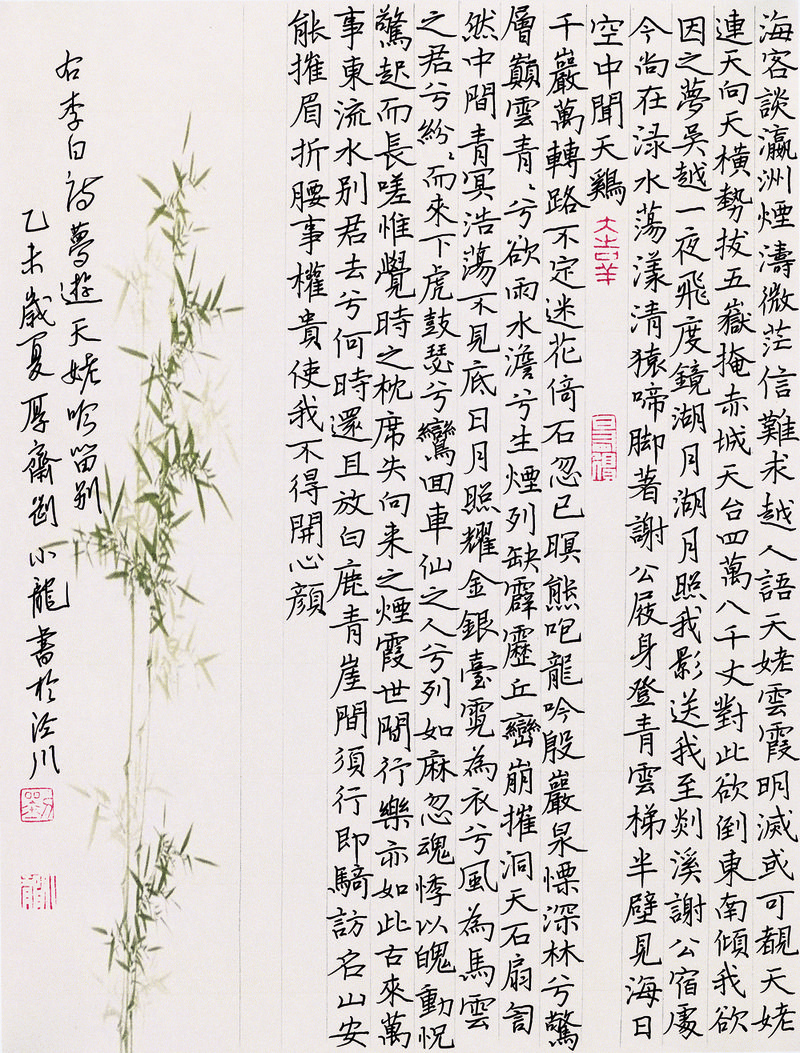 海客談瀛洲煙濤微茫信難求越人語天姥雲霞明滅或可覩天姥
連天向天橫勢拔五嶽掩赤城天台四萬八千丈對此欲倒東南傾我欲
因之夢吳越一夜飛度鏡湖月湖月照我影送我至剡溪謝公宿處
今尚在渌水蕩漾清猿啼脚著謝公屐身登青雲梯半壁見海日
空中聞天鷄
大吉羊
千巖萬轉路不定迷花倚石忽已暝熊咆龍吟殷巖泉慄深林兮驚
層巔雲青〻兮欲雨水澹兮生煙列缺霹靂丘巒崩摧洞天石扇訇
然中間青冥浩蕩不見底日月照耀金銀臺霓為衣兮風為馬雲
之君兮紛〻而來下虎鼓瑟兮鸞回車仙之人兮列如麻忽魂悸以魄動怳
驚起而長嗟惟覺時之枕席失向来之煙霞世間行樂亦如此古來萬
事東流水别君去兮何時還且放白鹿青崖間須行即騎訪名山安
能摧眉折腰事權貴使我不得開心顏
右李白詩夢遊天姥吟留别
乙未歲夏厚齋劉小龍書於涇川
劉
小龍